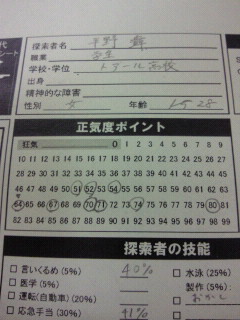 代
シート
探索者名 平野 舞
職業 学生
学校・学位 トアール高校
出身
精神的な障害
性別 女 年齢 28
正気度ポイント
狂気 0 1 2 3 4 5 6 7 8 9
10 11 12 13 14 15 16 17 18 19 20 21 22 23 24 25 26 27
28 29 30 31 32 33 34 35 36 37 38 39 40 41 42 43 44 45
46 47 48 49 50 51 52 53 54 55 56 57 58 59 60 61 62 63
64 65 66 67 68 69 70 71 72 73 74 75 76 77 78 79 80 81
82 83 84 85 86 87 88 89 90 91 92 93 94 95 96 97 98 99
探索者の技能
□ 言いくるめ (5%) 40% □ 水泳 (25%)
□ 医学 (5%) 製作 (5%)
□ 運転(自動車) (20%) □ おかし
□ 応急手当 (30%) 41%